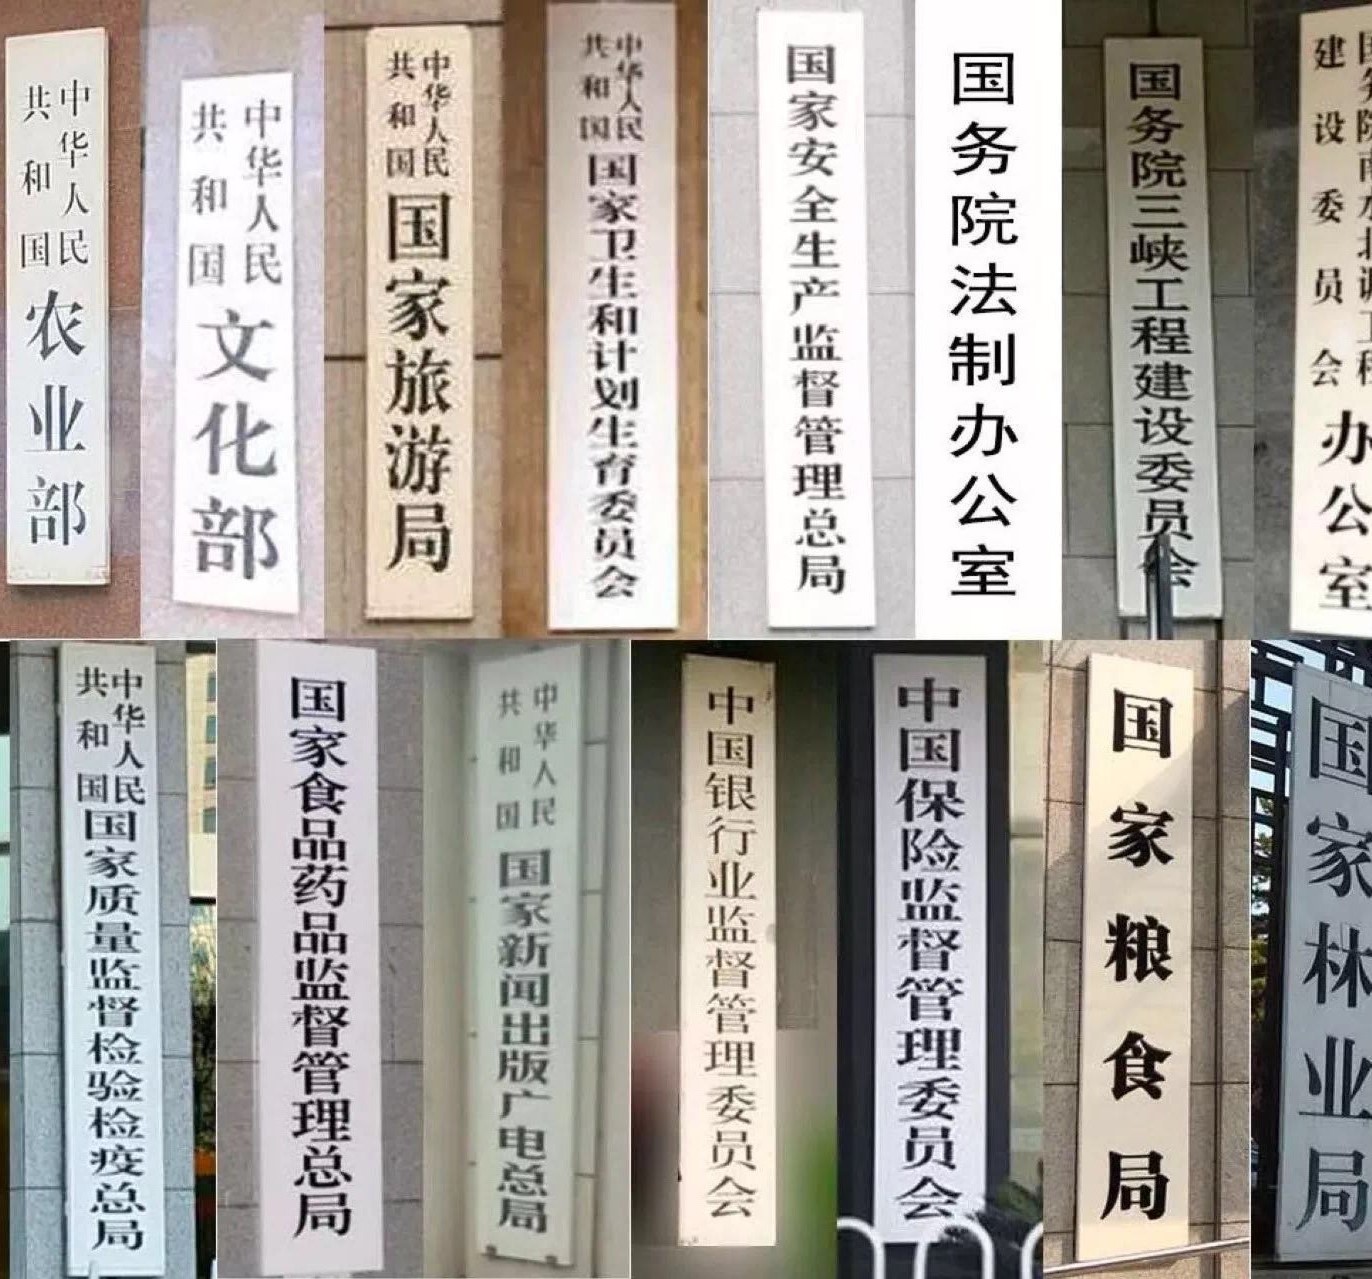 中华人民
共和国
农业部
中华人民
共和国
文化部
中华人民
共和国
国家旅游局
中华人民
共和国
国家卫生和计划生育委员会
国家安全生产监督管理总局
国务院法制办公室
国务院三峡工程建设委员会
国务院南水北调工程
建设委员会
办公室
中华人民
共和国
国家质量监督检验检疫总局
国家食品药品监督管理总局
中华人民
共和国
国家新闻出版广电总局
中国银行业监督管理委员会
中国保险监督管理委员会
国家粮食局
国家林业局